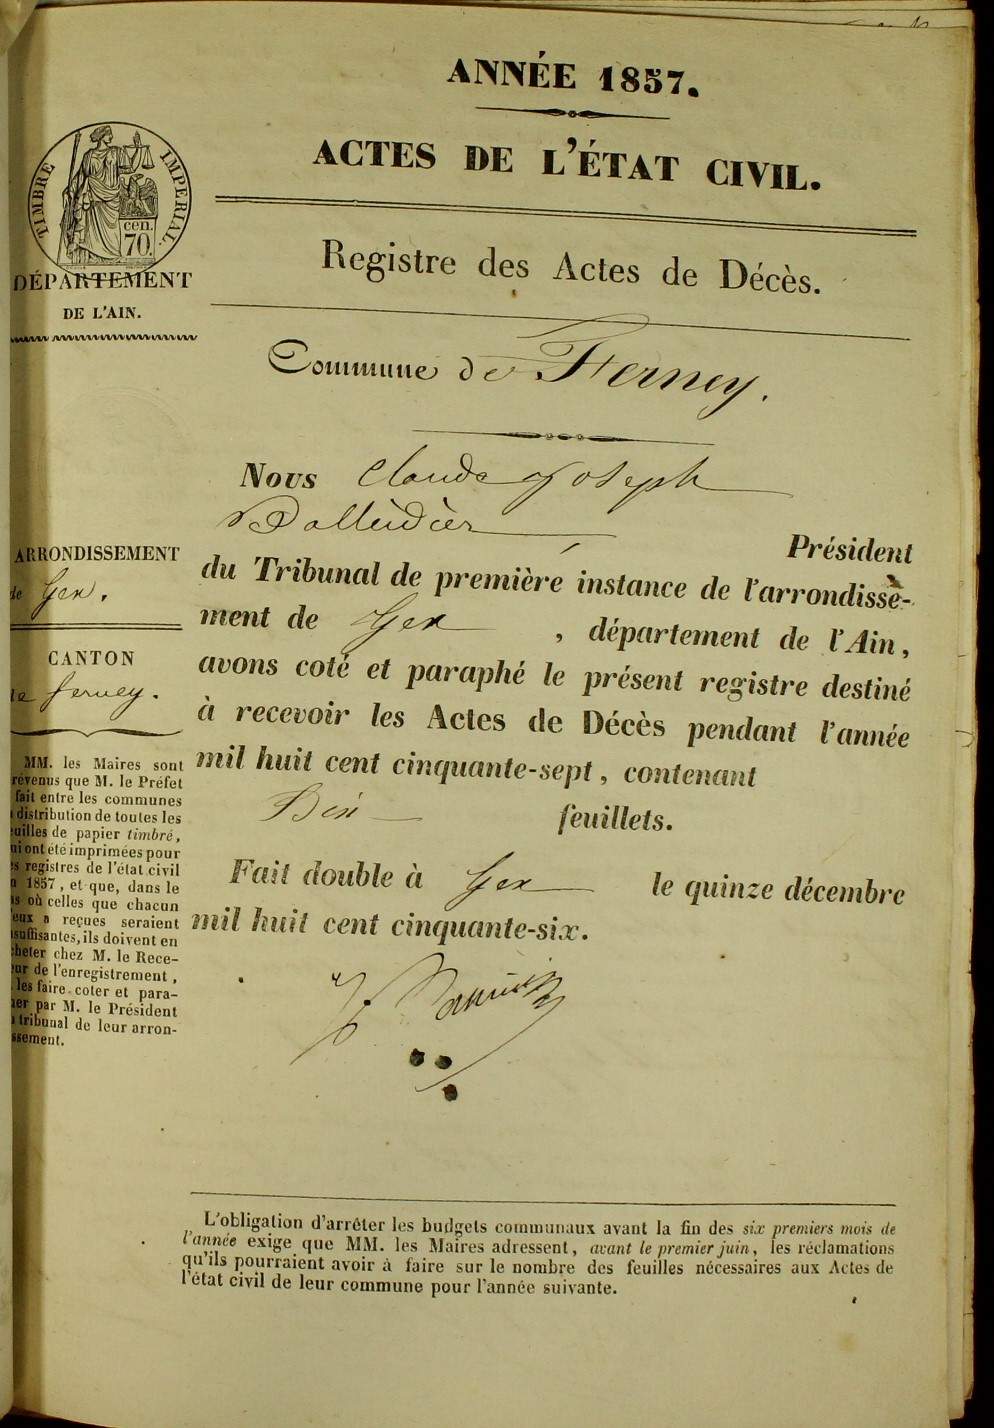 ANNÉE 1857.
ACTES DE L'ÉTAT CIVIL.
TIMBRE IMPERIAL.
cen.
70.
DÉPARTEMENT
DE L'AIN.
Registre des Actes de Décès.
Commune de Ferney.
Nous Claude Joseph
Balleidier
Président
du Tribunal de première instance de l'arrondisse-
ment de Gex, département de l'Ain,
avons coté et paraphé le présent registre destiné
à recevoir les Actes de Décès pendant l'année
mil huit cent cinquante-sept, contenant
Dix feuillets.
Fait double à Gex le quinze décembre
mil huit cent cinquante-six.
ARRONDISSEMENT
de Gex.
CANTON
de ferney.
MM. les Maires sont
révenus que M. le Préfet
fait entre les communes
distribution de toutes les
uilles de papier timbré,
ui ont été imprimées pour
s registres de l'état civil
1857, et que, dans le
s où celles que chacun
eux a reçues seraient
suffisantes, ils doivent en
heter chez M. le Rece-
ur de l'enregistrement,
les faire coter et para-
er par M. le Président
tribunal de leur arron-
ssement.
L'obligation d'arrêter les budgets communaux avant la fin des six premiers mois de
l'année exige que MM. les Maires adressent, avant le premier juin, les réclamations
qu'ils pourraient avoir à faire sur le nombre des feuilles nécessaires aux Actes de
l'état civil de leur commune pour l'année suivante.